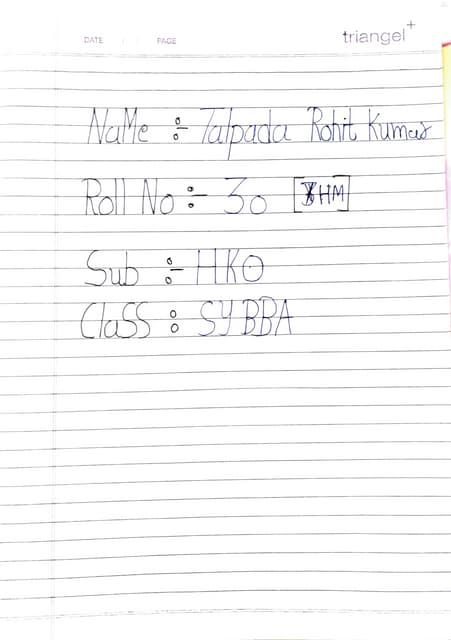 triangel+
DATE / / PAGE
NaMe :- Talpada Rohit Kumar
Roll No :- 30 [HM]
Sub :- HKO
ClaSS : SYBBA